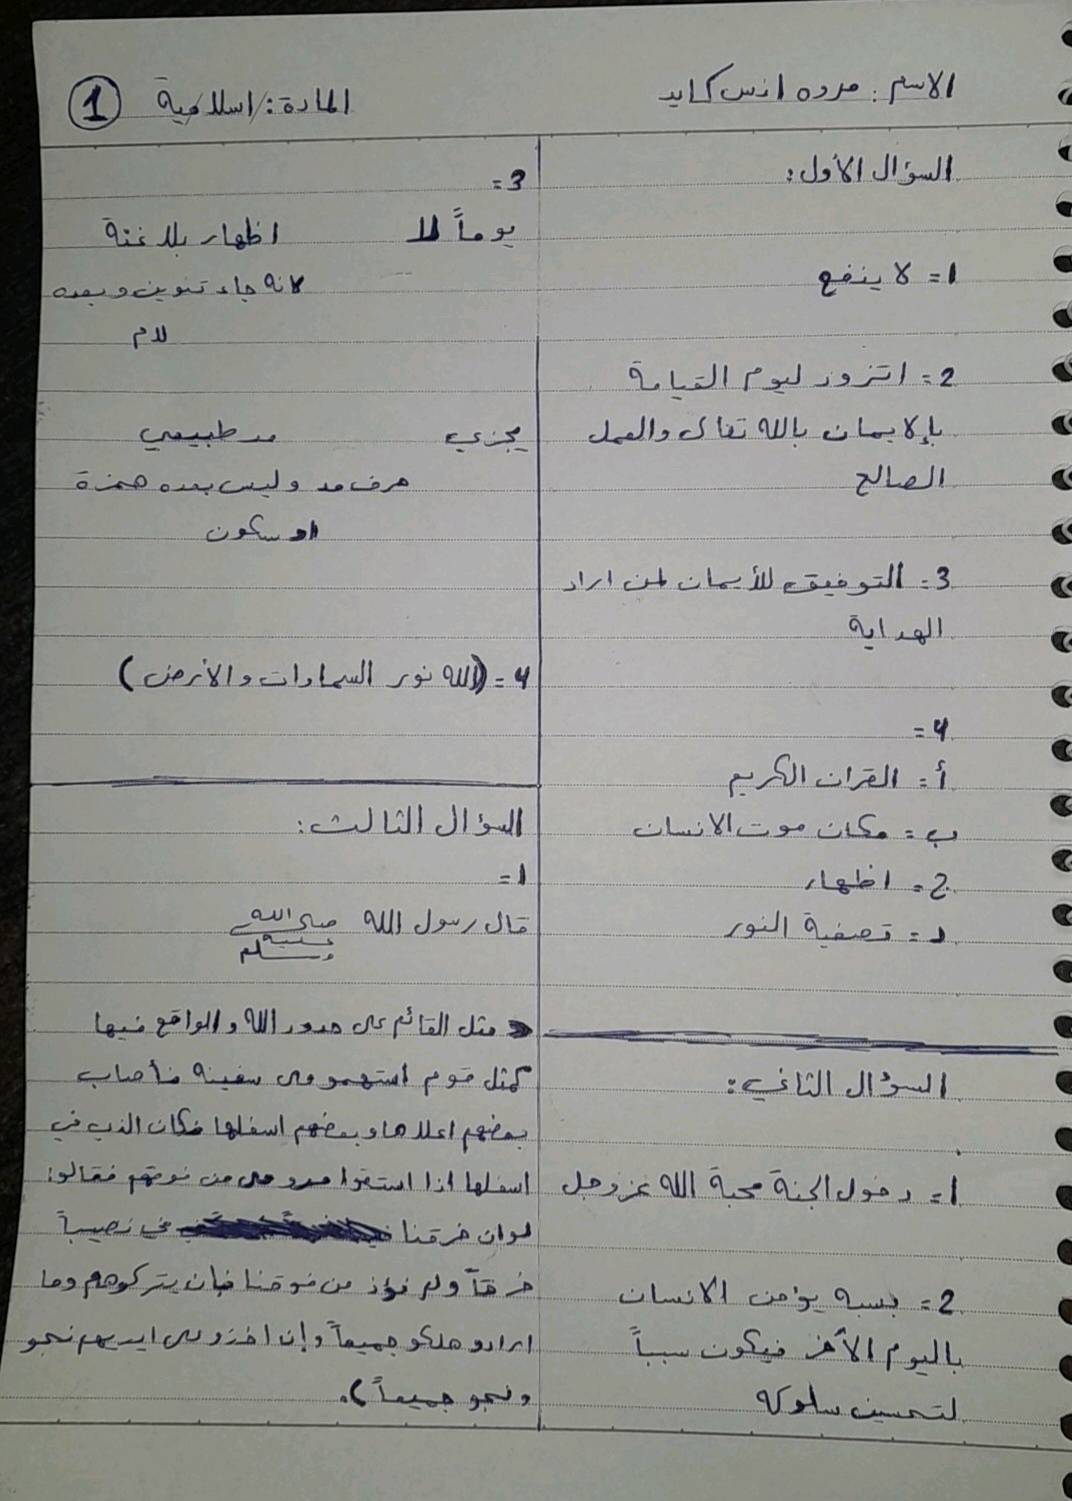 الاسم: مروه انس كايد
المادة: اسلامية
1
السؤال الأول:
1= لا ينفع
2= اتزود ليوم القيامة
بإلايمان بالله تعالى والعمل
الصالح
3= التوفيق للأيمان لمن اراد
الهداية
4=
أ= القران الكريم
ب= مكان موت الانسان
ج= اظهار
د= تصفية النور
السؤال الثاني:
1= دخول الجنة محبة الله عز وجل
2= بسبه يؤمن الانسان
باليوم الأخر فيكون سبباً
لتحسين سلوكه
3=
يوماً لا اظهار بلا غنة
لانه جاء تنوين وبعده
لام
يجزي مد طبيعي
حرف مد وليس بعده همزة
او سكون
4= (الله نور السماوات والأرض)
السؤال الثالث:
1=
قال رسول الله صلى الله
عليه
وسلم
مثل القائم على حدود الله والواقع فيها
كمثل قوم استهمو على سفينه فأصاب
بعضهم اعلاها وبعضهم اسفلها فكان الذي في
اسفلها اذا استقوا مرو على من فوقهم فقالو:
لو ان خرقنا في نصيباً
خرقاً ولم نؤذ من فوقنا فإن يتركوهم وما
ارادو هلكو جميعاً وإن اخذو على ايديهم نجو
ونجو جميعاً).